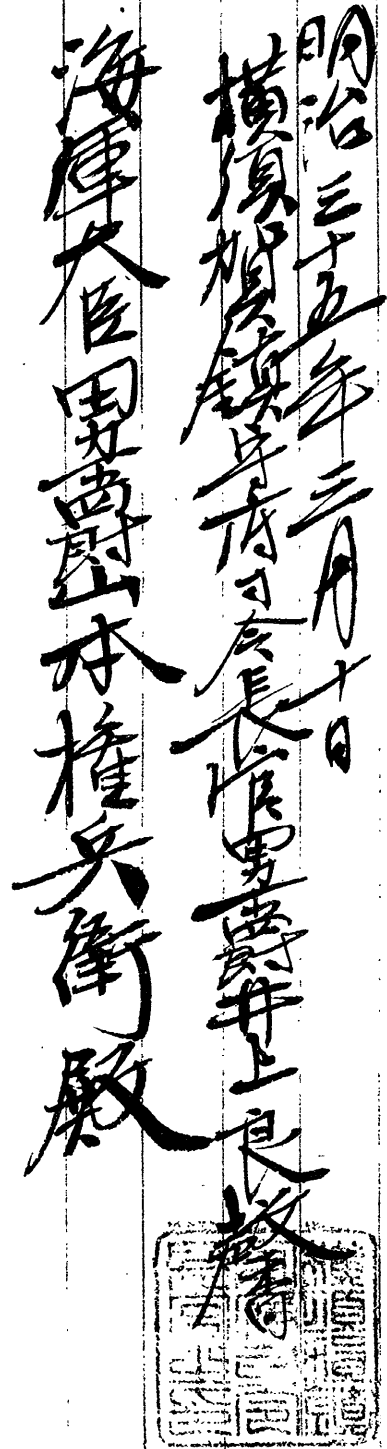 明治三十五年三月十日
横須賀鎮守府司令長官男爵井上良馨
海軍大臣男爵山本権兵衛殿